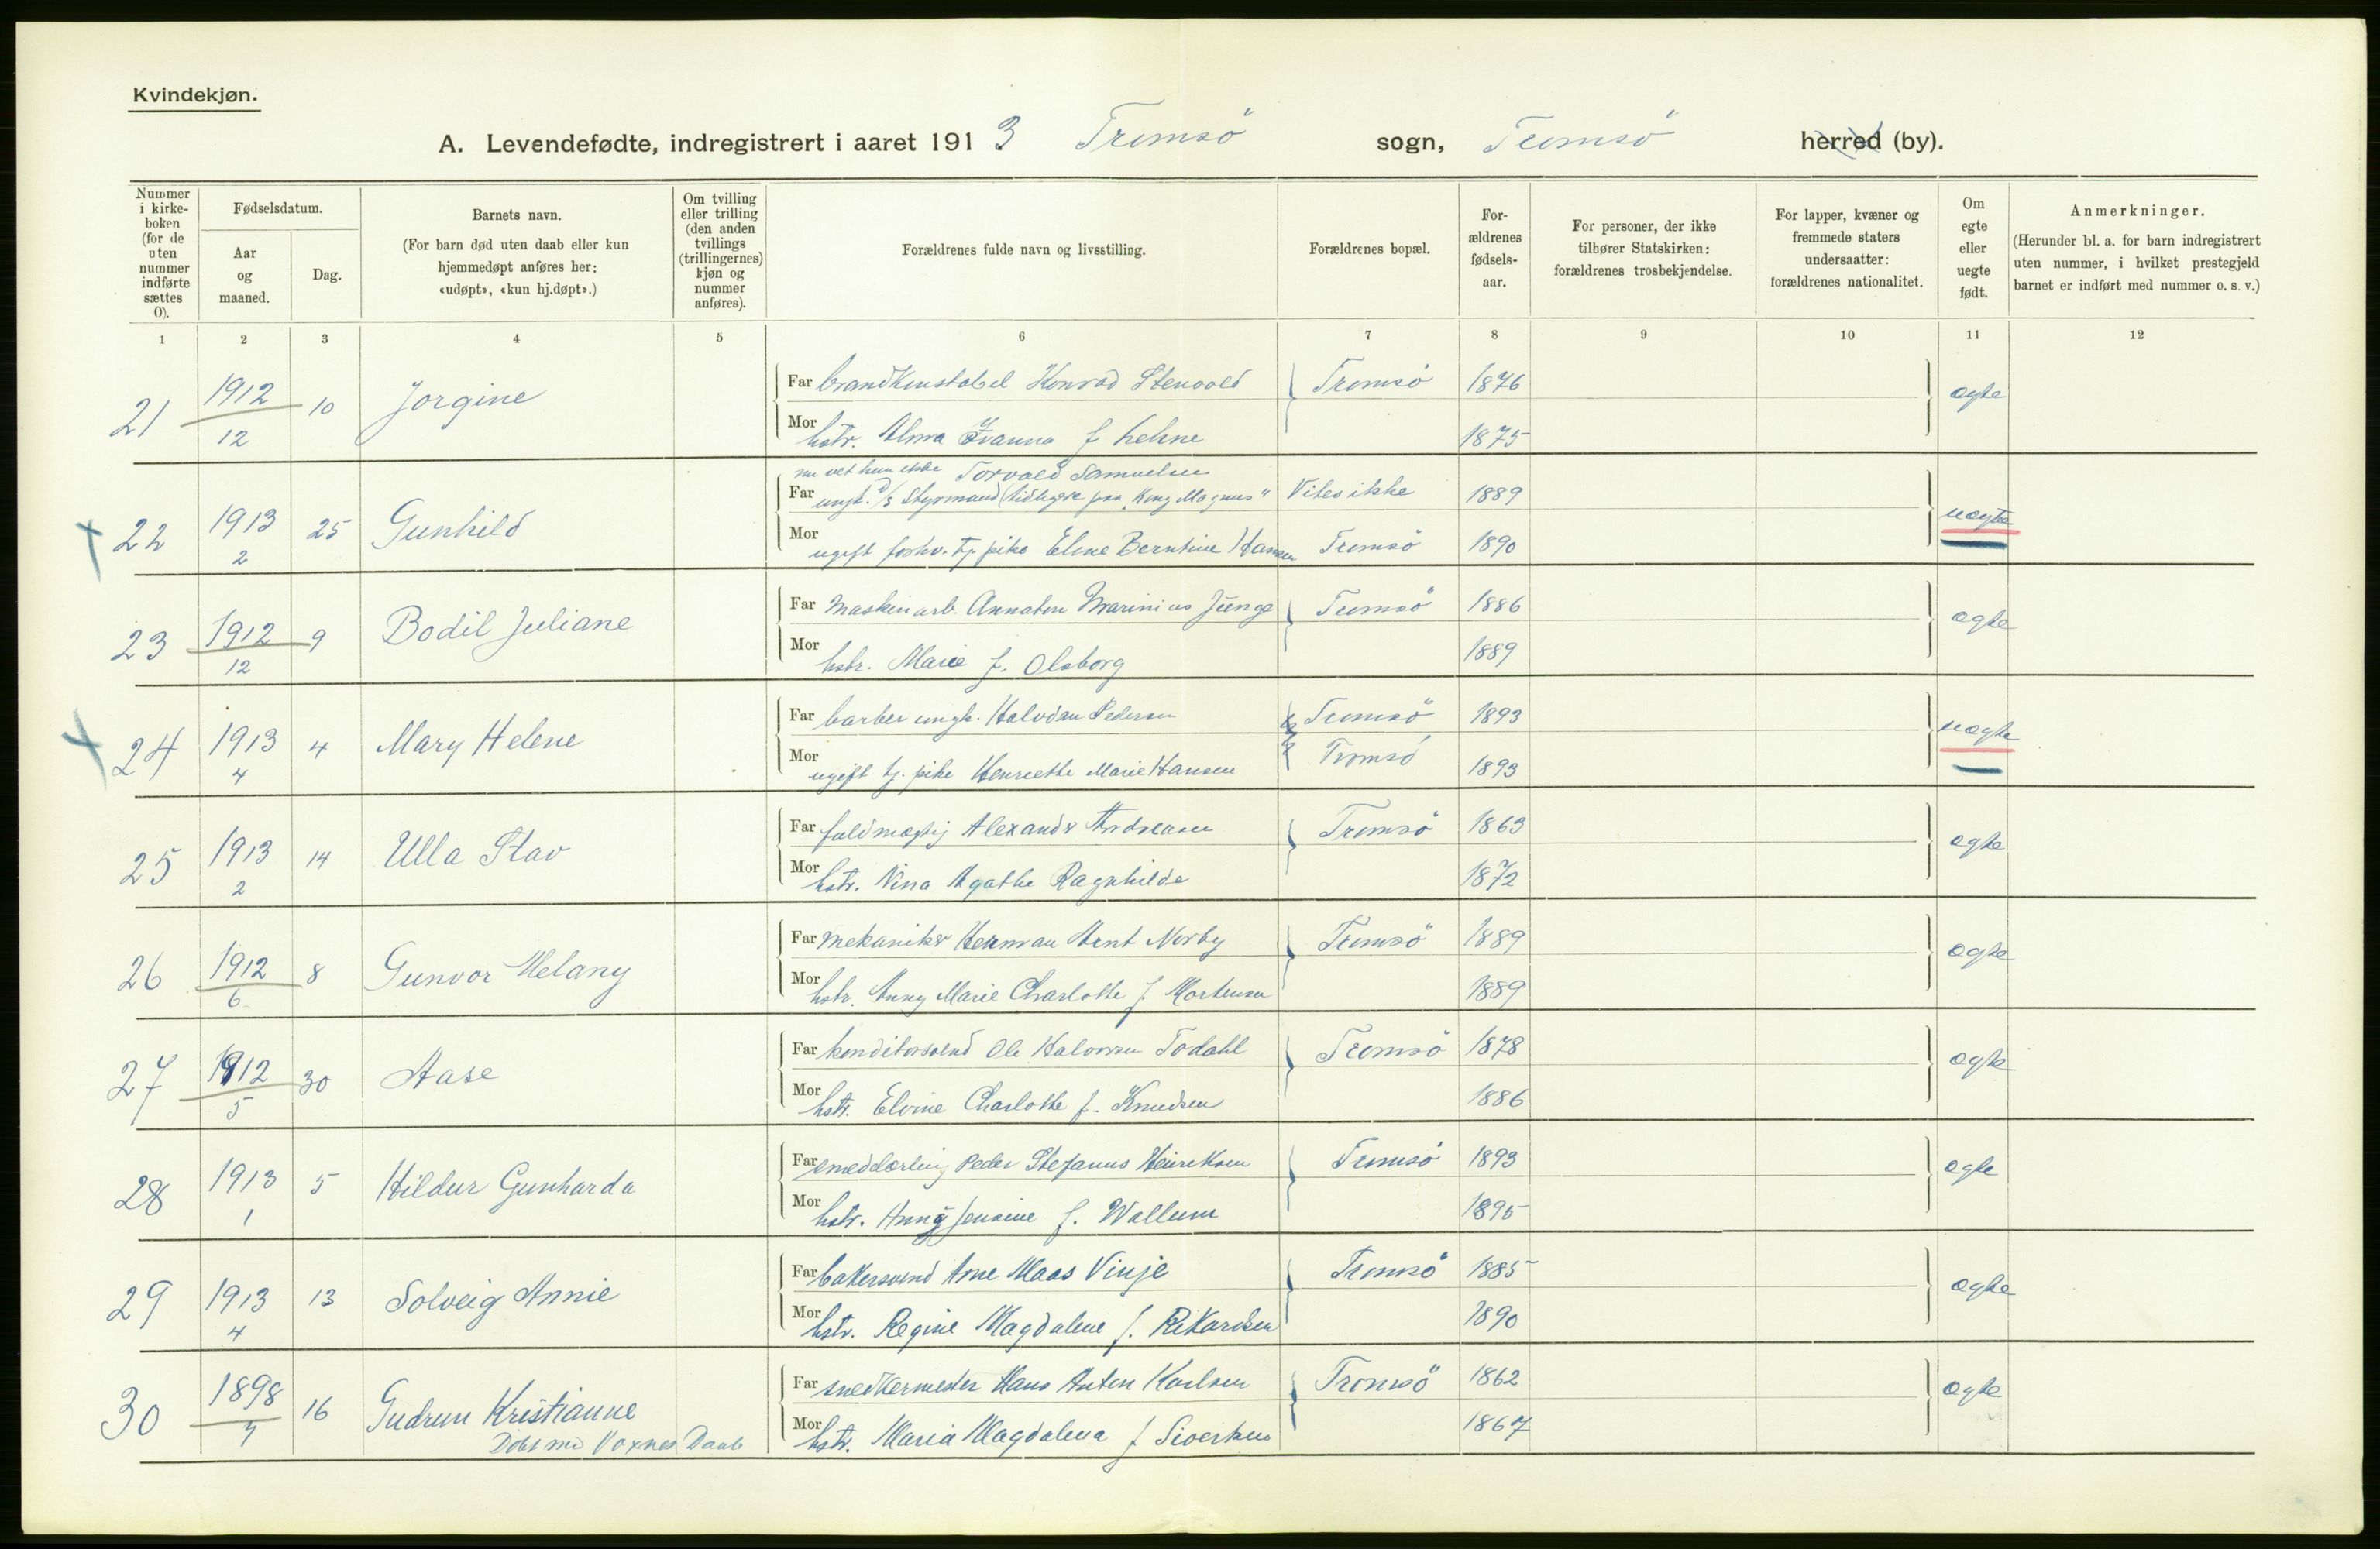 Kvindekjøn.
A. Levendefødte, indregistrert i aaret 1913 Tromsö sogn, Tromsö herred (by).
Nummer i kirkeboken (for de uten nummer indførte sættes 0).
Fødselsdatum.
Aar og maaned.
Dag.
Barnets navn.
(For barn død uten daab eller kun hjemmedøpt anføres her: «udøpt», «kun hj.døpt».)
Om tvilling eller trilling (den anden tvillings (trillingernes) kjøn og nummer anføres).
Forældrenes fulde navn og livsstilling.
Forældrenes bopæl.
Forældrenes fødselsaar.
For personer, der ikke tilhører Statskirken: forældrenes trosbekjendelse.
For lapper, kvæner og fremmede staters undersaatter: forældrenes nationalitet.
Om egte eller uegte født.
Anmerkninger.
(Herunder bl. a. for barn indregistrert uten nummer, i hvilket prestegjeld barnet er indført med nummer o. s. v.)
1 2 3 4 5 6 7 8 9 10 11 12
Far brandkonstabel Konrad Stenvold Tromsö 1876
21 1912 12 10 Jorgine ægte
Mor hstr. Alma f 1875
Torvald Samuelsen
Far ungk. Styrmand (tidligere paa "Kong Magnus" Vites ikke 1889
22 1913 2 25 Gunhild uægte
Mor ugift tj. pike Eline Berntine Hansen Tromsö 1890
Far Maskinarb. Annaton Marinius Junge Tromsö 1886
23 1912 12 9 Bodil Juliane ægte
Mor hstr. Marie f. Olsborg 1889
Far barber ungk. Halvdan Pedersen Tromsö 1893
24 1913 4 4 Mary Helene uægte
Mor ugift tj. pike Henriette Marie Hansen Tromsö 1893
Far fuldmægtig Alexander Andreasen Tromsö 1863
25 1913 2 14 Ulla Stav ægte
Mor hstr. Nina Agathe Ragnhilde 1872
Far Mekaniker Herman Arnt Norby Tromsö 1889
26 1912 6 8 Gunvor Melany ægte
Mor hstr. Anny Marie Charlotte f. Mortensen 1889
Far konditorsvend Ole Halvorsen Todahl Tromsö 1878
27 1912 5 30 Aase ægte
Mor hstr. Elvine Charlotte f. Knudsen 1886
Far smedlærling Peder Stefanus Henriksen Tromsö 1893
28 1913 1 5 Hildur Gunharda ægte
Mor hstr. Anna Jensine f. Wallum 1895
Far bakersvend Arne Maas Vinje Tromsö 1885
29 1913 4 13 Solveig Annie ægte
Mor hstr. Regine Magdalene f. Rikardsen 1890
Far snedkermester Hans Anton Karlsen Tromsö 1862
30 1898 7 16 Gudrun Kristianne ægte
Döbt med Voxnes Daab
Mor hstr. Maria Magdalena f Sivertsen 1867